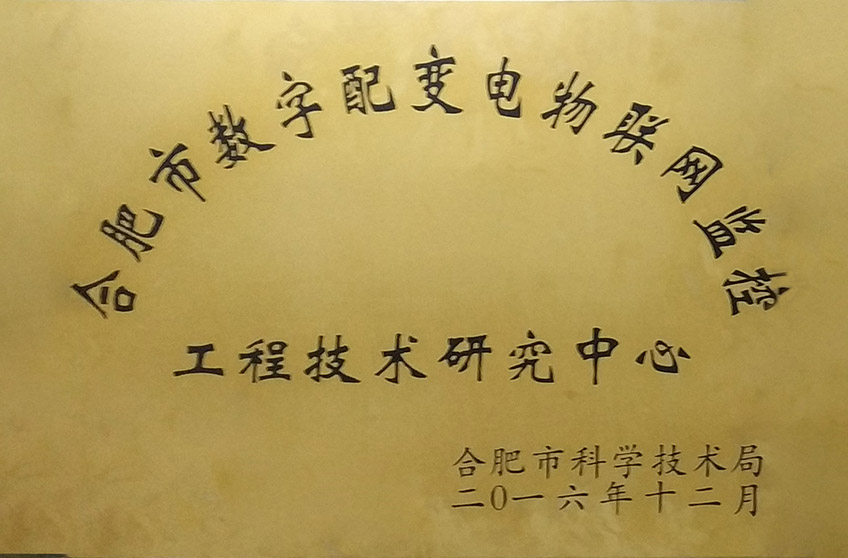 合肥市数字配变电物联网监控
工程技术研究中心
合肥市科学技术局
二〇一六年十二月